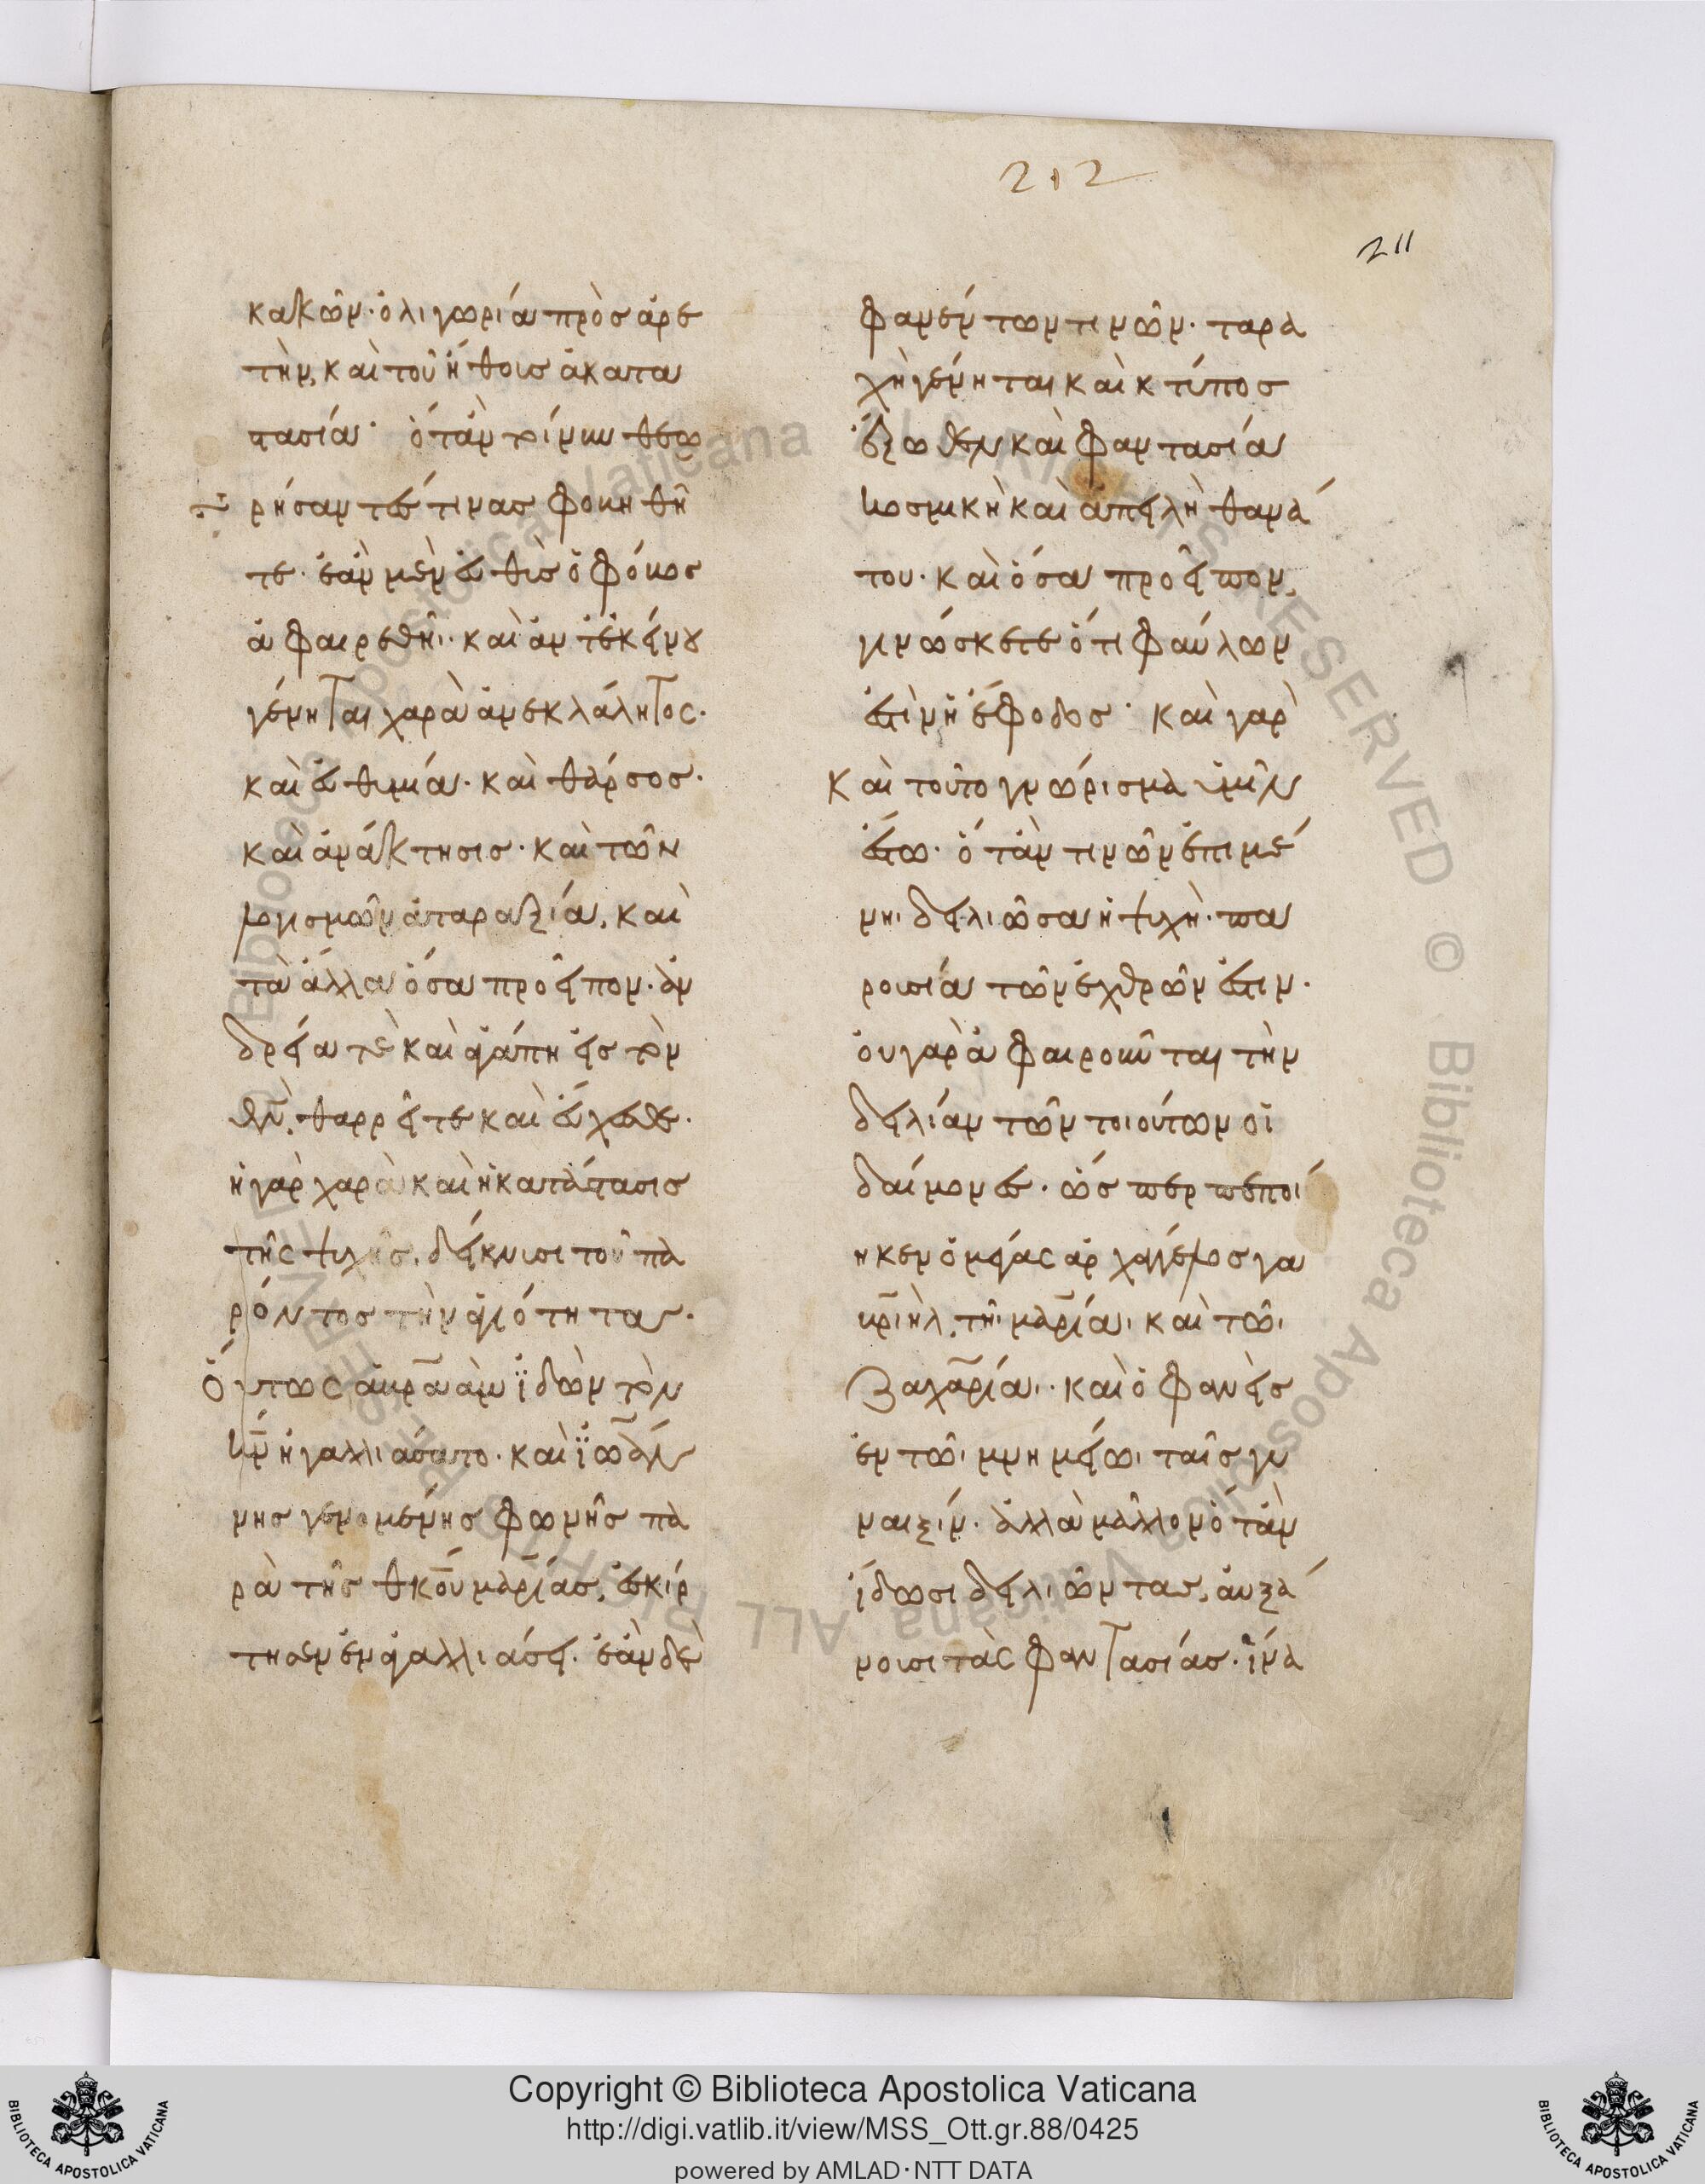 212
211
κακῶν· ὀλιγωρία πρὸς ἀρε
τὴν, καὶ τοῦ ἤθους ἀκατα
στασία· ὅταν τοίνυν θεω
ρήσαντές τινας φοβηθῆ
τε· ἐὰν μὲν εὐθὺς ὁ φόβος
ἀφαιρεθῆι· καὶ ἀντ' ἐκείνου
γένηται χαρὰ ἀνεκλάλητος·
καὶ εὐθυμία· καὶ θάρσος·
καὶ ἀνάκτησις· καὶ τῶν
λογισμῶν ἀταραξία, καὶ
τὰ ἄλλα ὅσα προεῖπον· ἀν
δρεία τὲ καὶ ἀγάπη εἰς τὸν
θν̄. θαρρεῖτε καὶ εὔχεσθε·
ἡ γὰρ χαρὰ καὶ ἡ κατάστασις
τῆς ψυχῆς, δείκνυσι τοῦ πα
ρόντος τὴν ἁγιότητα·
Οὕτως ἀβραὰμ ἰδὼν τὸν
κν̄ ἠγαλλιάσατο· καὶ ἰω̄ αν
νης γενομένης φωνῆς πα
ρὰ τῆς θκοῦ μαρίας, ἐσκίρ
τησεν ἐν ἀγαλλιάσει· ἐὰν δὲ
φανέντων τινῶν· ταρα
χὴ γένηται καὶ κτύπος
ἔξωθεν καὶ φαντασία
κοσμικὴ καὶ ἀπειλὴ θανά
του· καὶ ὅσα προεῖπον,
γινώσκετε ὅτι φαύλων
ἐστὶν ἡ ἔφοδος· καὶ γὰρ
Καὶ τοῦτο γνώρισμα ὑμῖν
ἔστω· ὅταν τινῶν ἐπιμέ
νηι δειλιῶσα ἡ ψυχὴ· πα
ρουσία τῶν ἐχθρῶν ἐστιν·
οὐ γὰρ ἀφαιροῦνται τὴν
δειλίαν τῶν τοιούτων οἱ
δαίμονες· ὥσπερ πεποί
ηκεν ὁ μέγας ἀρχάγγελος γα
βριὴλ, τῆι μαρίαι· καὶ τῶι
Ζαχαρίαι· καὶ ὁ φανεὶς
ἐν τῶι μνημείωι ταῖς γυ
ναιξίν· ἀλλὰ μᾶλλον ὅταν
ἴδωσι δειλιῶντας, αὐξά
νουσι τὰς φαντασίας· ἵνα
Copyright © Biblioteca Apostolica Vaticana
http://digi.vatlib.it/view/MSS_Ott.gr.88/0425
powered by AMLAD·NTT DATA